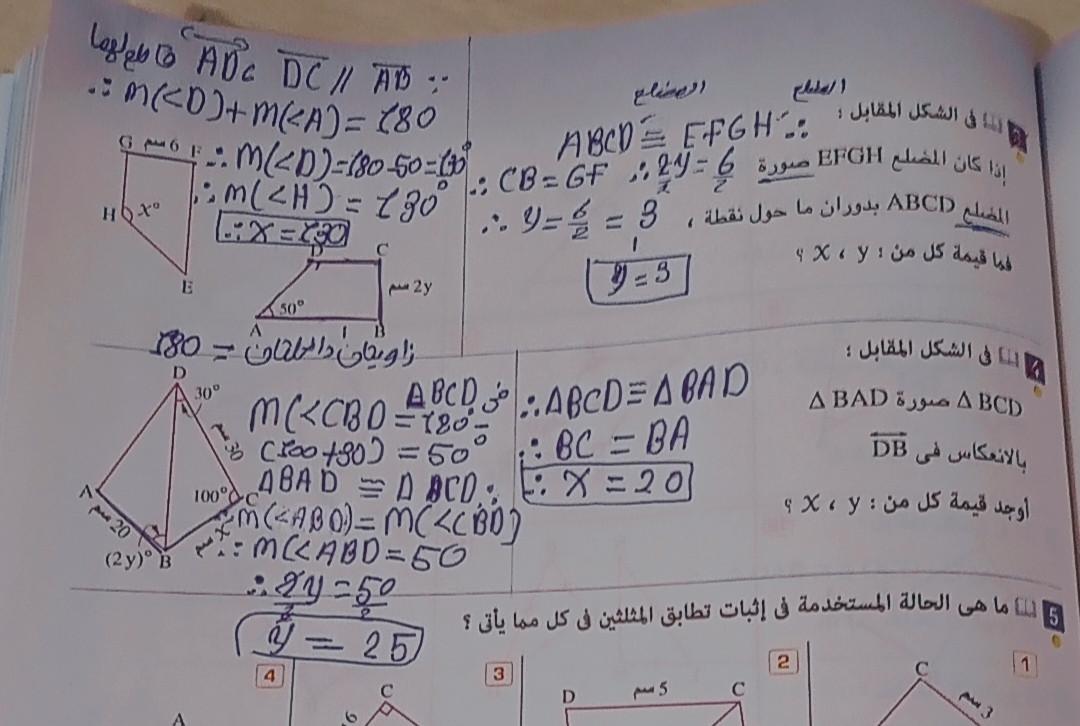 3 فى الشكل المقابل :
إذا كان المضلع EFGH صورة
المضلع ABCD بدوران ما حول نقطة ،
فما قيمة كل من : x ، y ؟
المضلع المضلع
∴ ABCD ≡ EFGH
∴ CB = GF ∴ 2y/2 = 6/2
∴ y = 6/2 = 3
y = 3
∵ DC // AB ، AD
∴ m(<D) + m(<A) = 180
∴ m(<D) = 180 - 50 = 130°
∴ m(<H) = 130°
∴ x = 130
G 6 سم F
H x°
E
D C
2y سم
50°
A B
180 =
4 فى الشكل المقابل :
Δ BCD صورة Δ BAD
بالانعكاس فى DB
أوجد قيمة كل من : x ، y ؟
∴ ΔBCD ≡ ΔBAD
∴ BC = BA
∴ x = 20
ΔBCD
m(<CBD = 180° -
(100 + 30) = 50°
ΔBAD ≡ Δ BCD ∵
m(<ABD) = m(<CBD)
∴ m(<ABD = 50
∴ 2y/2 = 50/2
y = 25
D
30°
30 سم
A 100° C
20 سم x سم
(2y)° B
5 ما هى الحالة المستخدمة فى إثبات تطابق المثلثين فى كل مما يأتى ؟
1 C
3 سم
2
3 D 5 سم C
4 C
6
A